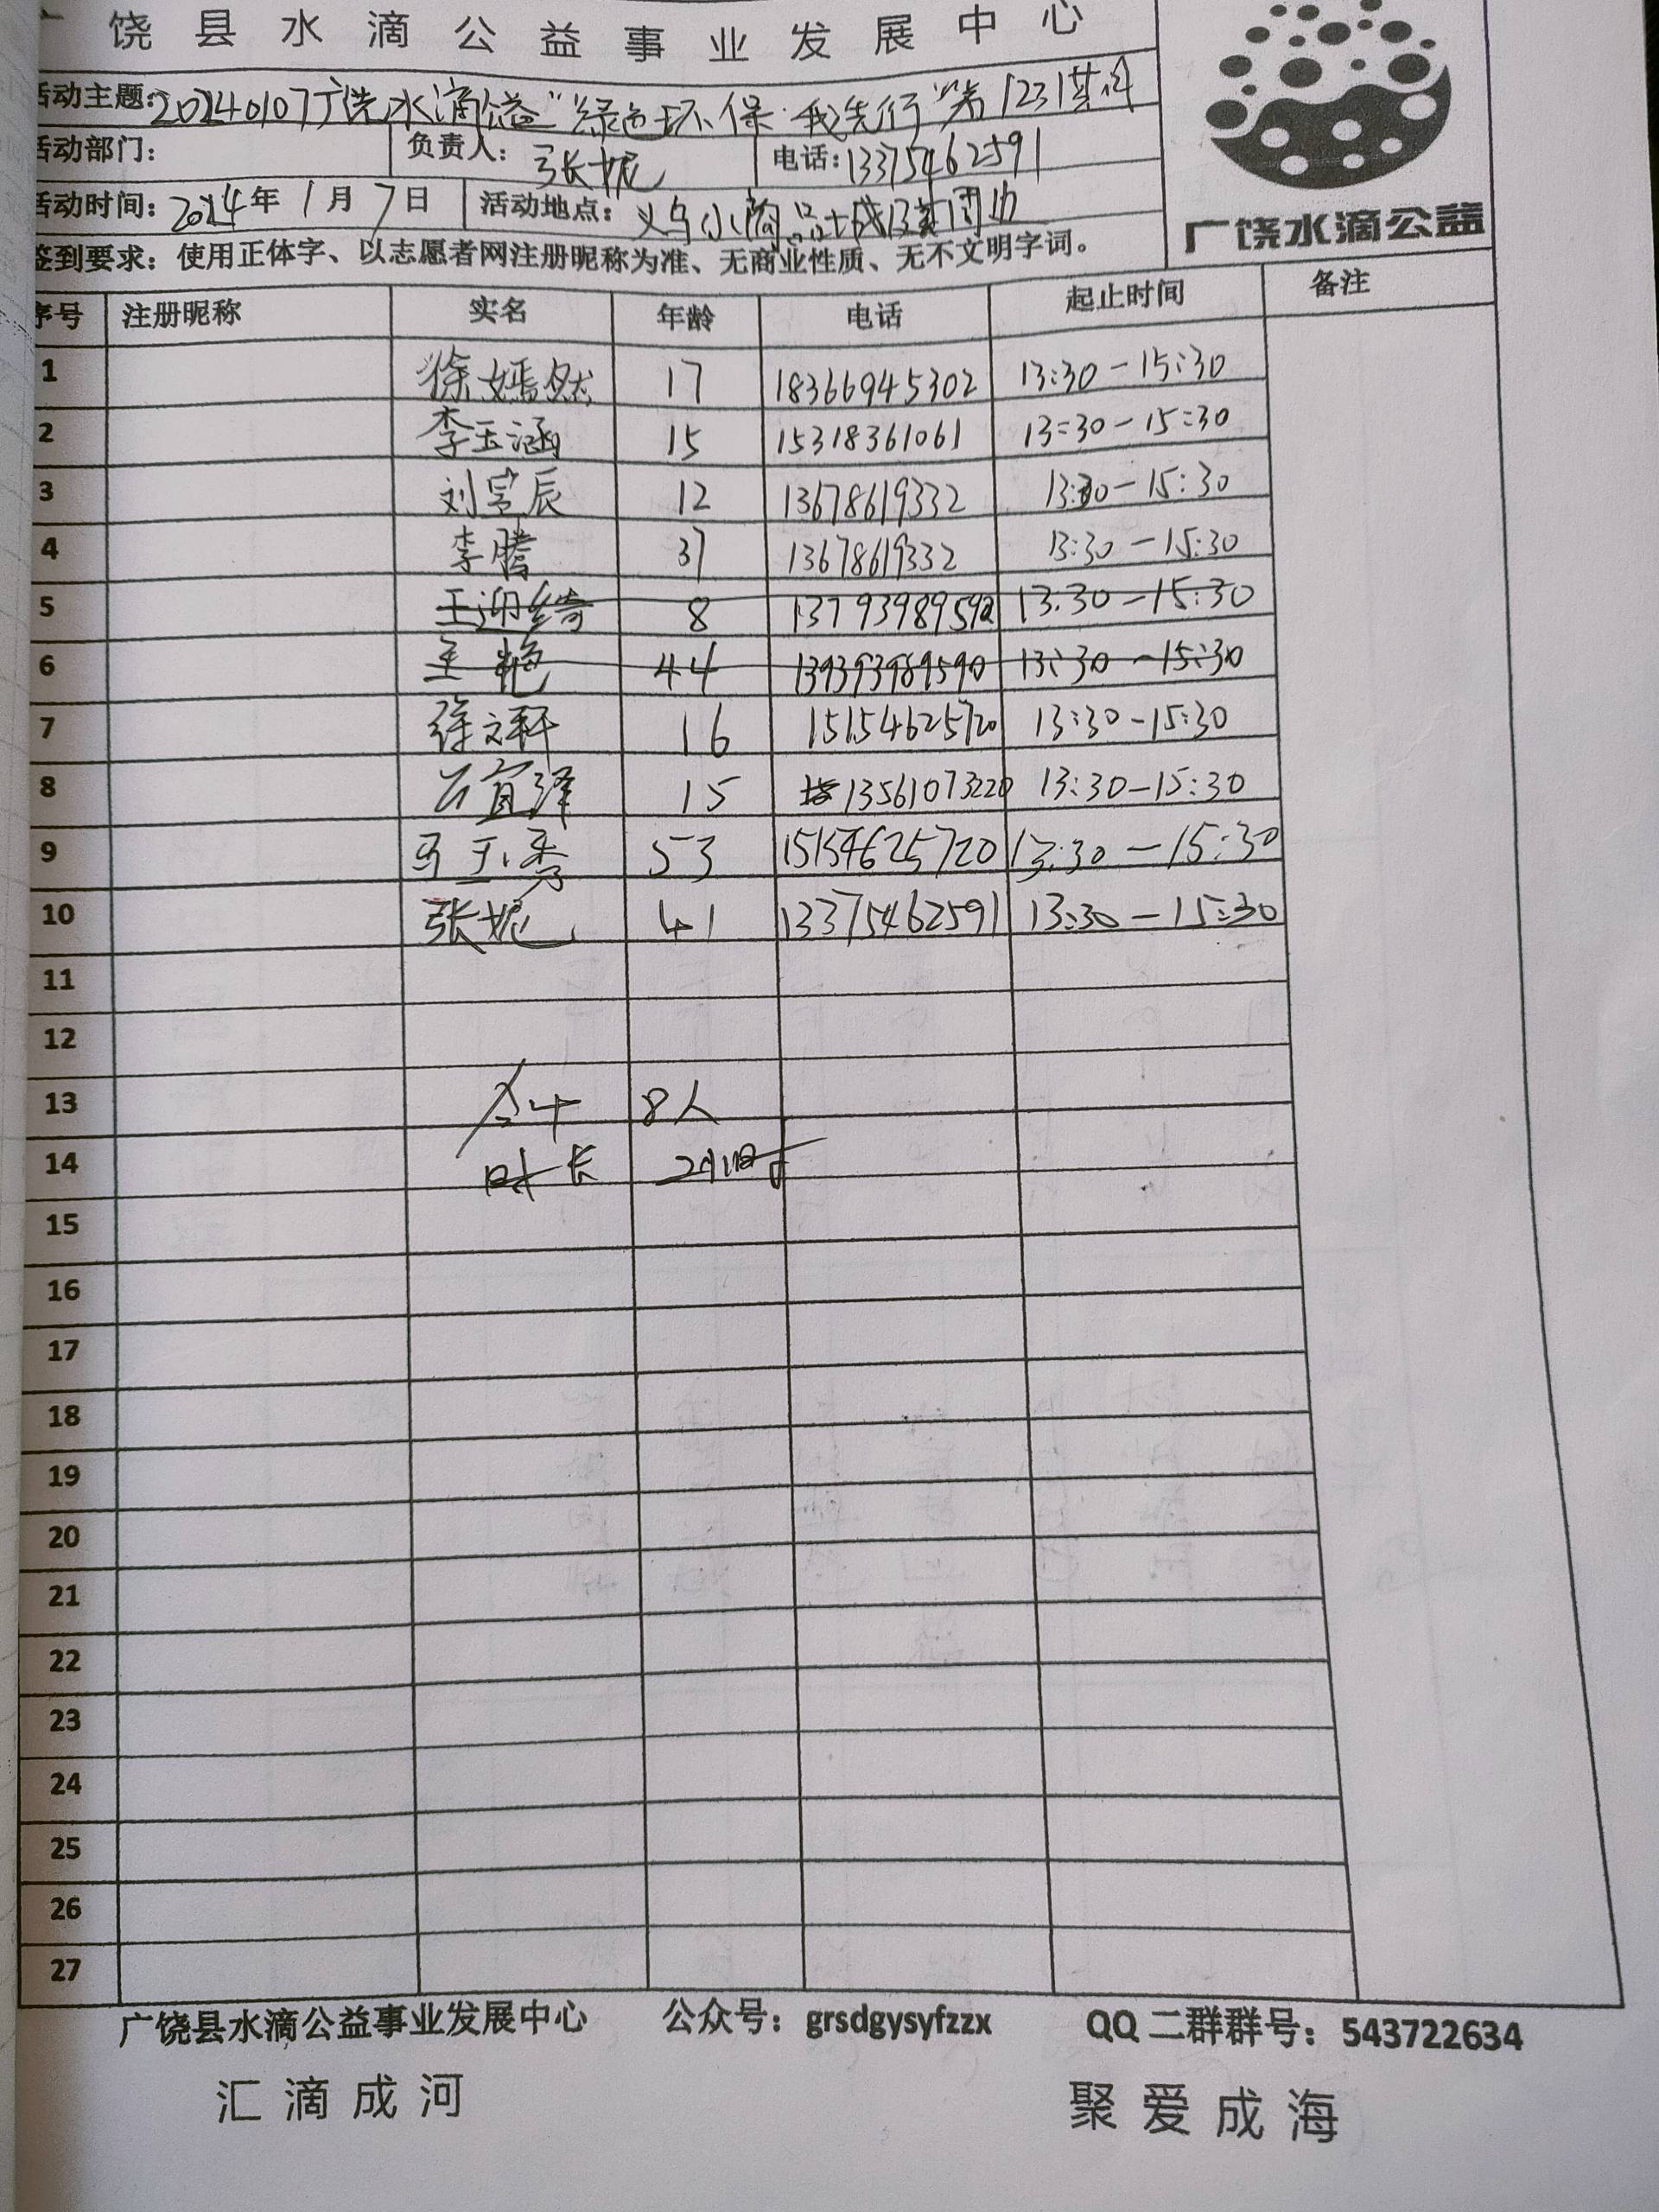 饶县水滴公益事业发展中心
活动主题:20240107广饶水滴公益"绿色环保·我先行"第1231期
活动部门: 负责人: 张妮 电话:13375462591
活动时间:2024年1月7日 活动地点: 义乌小商品城及其周边
广饶水滴公益
签到要求:使用正体字、以志愿者网注册昵称为准、无商业性质、无不文明字词。
序号 注册昵称 实名 年龄 电话 起止时间 备注
1 徐嫣然 17 18366945302 13:30-15:30
2 李玉涵 15 15318361061 13:30-15:30
3 刘宇辰 12 13678619332 13:30-15:30
4 李腾 37 13678619332 13:30-15:30
5 王迎绮 8 13793989592 13:30-15:30
6 王艳 44 139393989590 13:30-15:30
7 徐文轩 16 15154625720 13:30-15:30
8 石宜泽 15 13561073220 13:30-15:30
9 马玉秀 53 15154625720 13:30-15:30
10 张妮 41 13375462591 13:30-15:30
11
12
13 合计 8人
14 时长 2小时
15
16
17
18
19
20
21
22
23
24
25
26
27
广饶县水滴公益事业发展中心 公众号:grsdgysyfzzx QQ二群群号:543722634
汇滴成河 聚爱成海